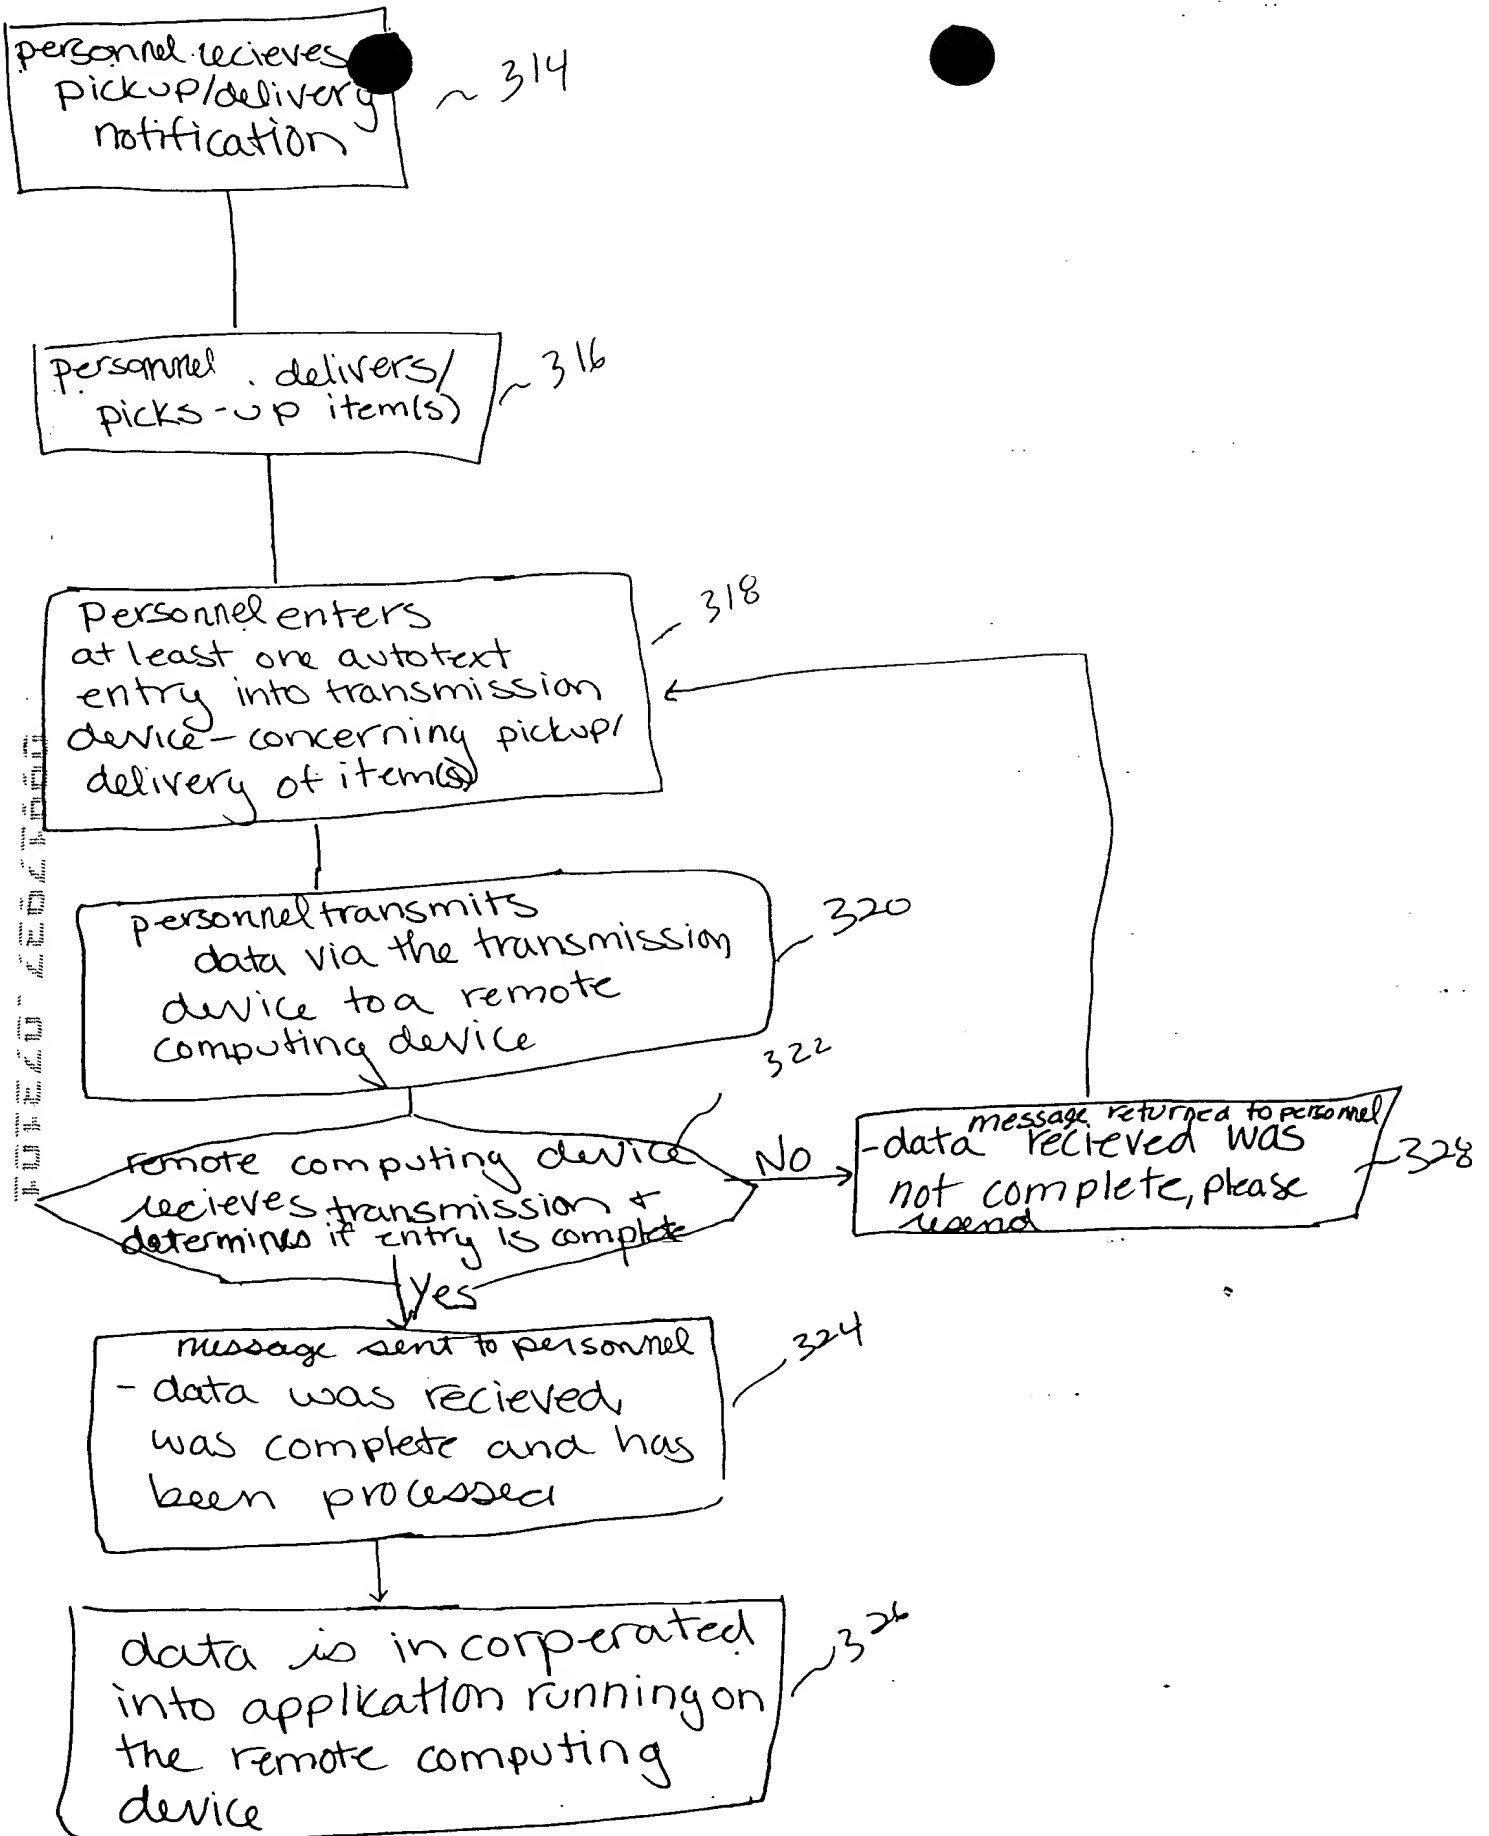 personnel recieves
pickup/delivery
notification
314
personnel delivers/
picks-up item(s)
316
Personnel enters
at least one autotext
entry into transmission
device - concerning pickup/
delivery of item(s)
318
personnel transmits
data via the transmission
device to a remote
computing device
320
322
remote computing device
recieves transmission +
determines if entry is complete
No
message returned to personnel
- data recieved was
not complete, please
resend
328
Yes
message sent to personnel
- data was recieved,
was complete and has
been processed
324
data is incorperated
into application running on
the remote computing
device
326